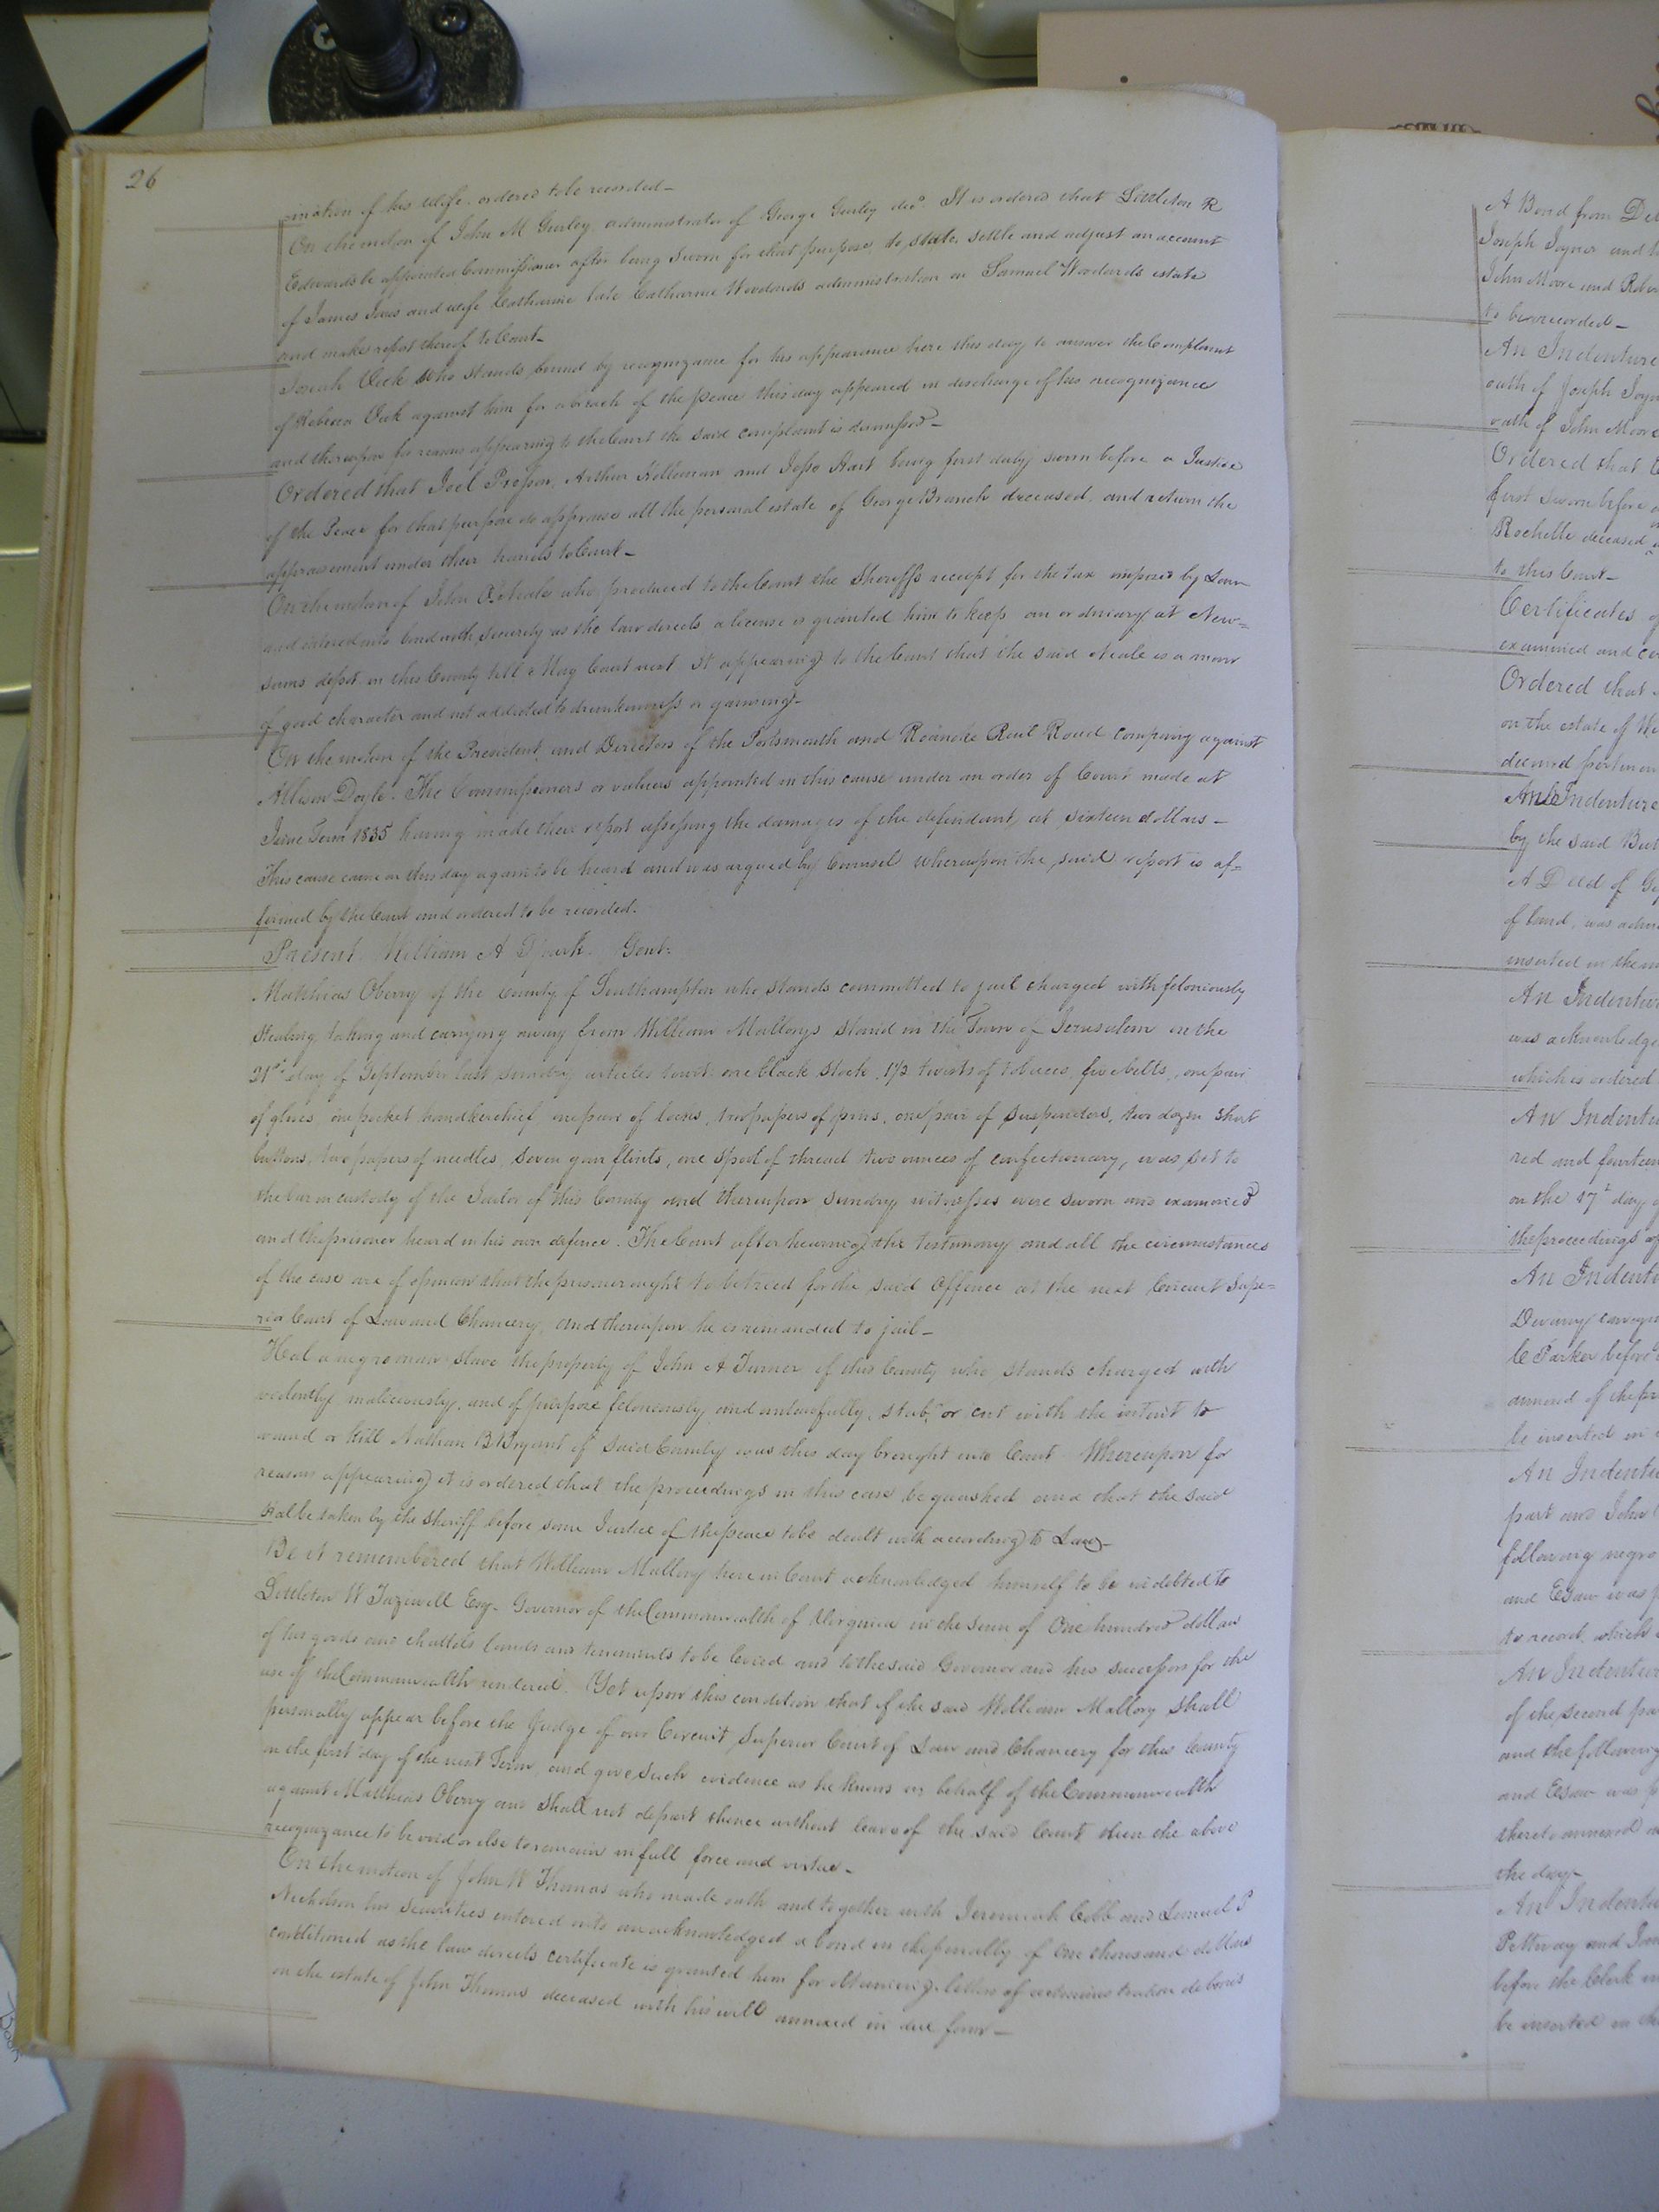 26
mination of his wife ordered to be recorded—
On the motion of John M Gurley administrator of George Gurley decd. It is ordered that Littleton R
Edwards be appointed Commissioner after being sworn for that purpose, to state, settle and adjust an account
of James and wife Catharine late Catharine Woodards administration on Samuel Woodards estate
and make report thereof to Court—
who stands bound by recognizance for his appearance here this day to answer the Complaint
of Rebecca against him for a breach of the peace this day appeared in discharge of his recognizance
and thereupon for reasons appearing to the Court the said complaint is dismissed—
Ordered that Joel Prosson, Arthur Holleman and Jesse Hart being first duly sworn before a Justice
of the Peace for that purpose do appraise all the personal estate of George Branch deceased, and return the
appraisement under their hands to Court—
On the motion of John Neale who produced to the Court the Sheriffs receipt for the tax imposed by Law
and entered into bond with security as the law directs a license is granted him to keep an ordinary at New=
soms depot in this County till May Court next It appearing to the Court that the said Neale is a man
of good character and not addicted to drunkenness or gaming—
On the motion of the President and Directors of the Portsmouth and Roanoke Rail Road company against
Allison Doyle. The Commissioners or valuers appointed in this cause under an order of Court made at
June Term 1835 having made their report assessing the damages of the defendant, at sixteen dollars—
This cause came on this day again to be heard and was argued by Counsel whereupon the said report is af=
firmed by the Court and ordered to be recorded.
Present William A Spark. Gent:
Matthias Oberry of the county of Southampton who stands committed to jail charged with feloniously
stealing, taking and carrying away from William Mallorys stand in the Town of Jerusalem on the
21st day of September last sundry articles towit: one black stock, 1½ twists of tobacco, five belts, one pair
of gloves one pocket handkerchief, one pair of locks, two papers of pins, one pair of suspenders, two dozen shirt
buttons, two papers of needles, seven gun flints, one spool of thread two ounces of confectionary, was set to
the bar in custody of the Jailor of this County and thereupon sundry witnesses were sworn and examined
and the prisoner heard in his own defence. The Court after hearing the testimony and all the circumstances
of the case are of opinion that the prisoner ought to be tried for the said offence at the next Circuit Supe=
rior Court of Law and Chancery, and thereupon he is remanded to jail—
Hal a negro man slave the property of John A Turner of this County who stands charged with
violently maliciously, and of purpose feloniously and unlawfully, stab, or cut with the intent to
wound or kill Nathan B Bryant of said County was this day brought into Court Whereupon fo
reasons appearing it is ordered that the proceedings in this case be quashed and that the said
Hal be taken by the sheriff before some Justice of the peace to be dealt with according to Law—
Be it remembered that William Mallory here in Court acknowledged himself to be indebted to
Littleton W Tazewell Esq. Governor of the Commonwealth of Virginia in the sum of One hundred dollars
of his goods and chattels lands and tenements to be levied and to the said Governor and his successors for the
use of the Commonwealth rendered. Yet upon this condition that if the said William Mallory shall
personally appear before the Judge of our Circuit Superior Court of Law and Chancery for this County
on the first day of the next Term, and give such evidence as he knows on behalf of the Commonwealth
against Matthias Oberry and shall not depart thence without leave of the said Court then the above
recognizance to be void or else to remain in full force and virtue—
On the motion of John W Thomas who made oath and together with Jeremiah Cobb and Lemuel P
Nicholson his securities entered into and acknowledged a bond in the penalty of One thousand dollars
conditioned as the law directs certificate is granted him for obtaining letters of administration de bonis
on the estate of John Thomas deceased with his will annexed in due form—
A Bond from
Joseph Joyner and
John Moore and
to be recorded—
An Indenture
oath of Joseph
oath of John Moore
Ordered that
first sworn before
Rochelle deceased
to this Court—
Certificates
examined and
Ordered that
on the estate of
deemed
An Indenture
by the said
A Deed of
of land, was
inserted in the
An Indenture
was acknowledge
which is ordered
An Indentu
red and fourteen
on the 17th day
the proceedings
An Indentu
C Parker before
annexed
be inserted in
An Indentu
part and John
following negro
and Esaw was
to record, which
An Indentur
of the second pa
and the following
and Esaw was
thereto annexed
the day—
An Indentu
Pettway and
before the Clerk
be inserted in